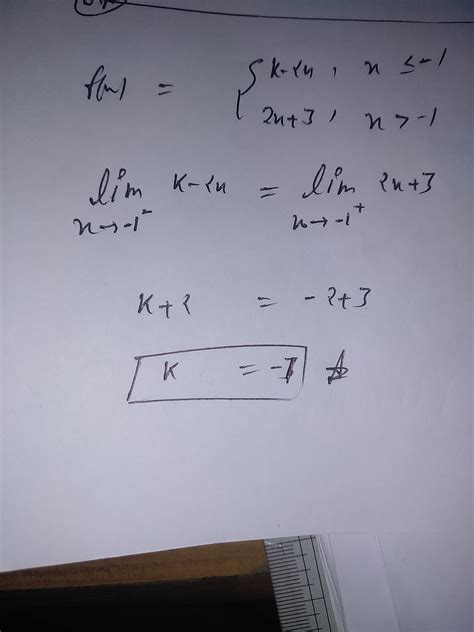 f(x) = { k-2x, x ≤ -1
2x+3, x > -1
lim x→-1⁻ k-2x = lim x→-1⁺ 2x+3
k+2 = -2+3
k = -1